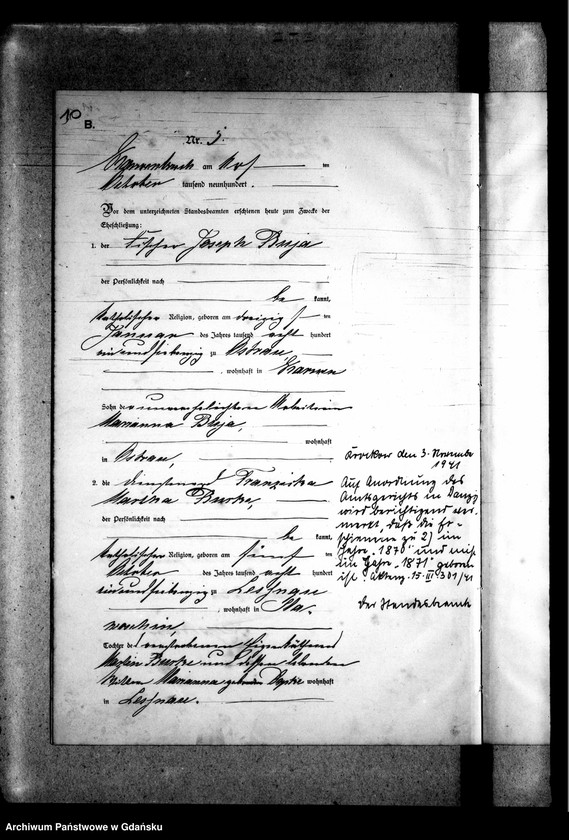 10
B.
Nr. 3.
am
ten
October tausend neunhundert
Vor dem unterzeichneten Standesbeamten erschienen heute zum Zwecke der
Eheschließung:
1. der Fischer Joseph Buja
der Persönlichkeit nach
be kannt,
katholischer Religion, geboren am dreizigsten
Januar des Jahres tausend acht hundert
einundsiebenzig zu Ostrau,
, wohnhaft in
Sohn der unverehelichten Arbeiterin
Marianna Buja,
wohnhaft
in Ostrau,
2. die Franziska
Marina
der Persönlichkeit nach
be kannt,
katholischer Religion, geboren am fünften
October des Jahres tausend acht hundert
einundsiebenzig zu Lessnau
, wohnhaft in
Tochter des verstorbenen Eigenthümers
Martin und dessen lebenden
Wittwe Marianna geborene wohnhaft
in Lessnau.
den 3. November
1941
Auf Anordnung des
Amtsgerichts in Danzig
wird berichtigend ver-
merkt, daß die Er-
schienene zu 2) im
Jahre "1870" und nicht
im Jahre "1871" geboren
ist. 15. III 301/41
Der Standesbeamte
Archiwum Państwowe w Gdańsku